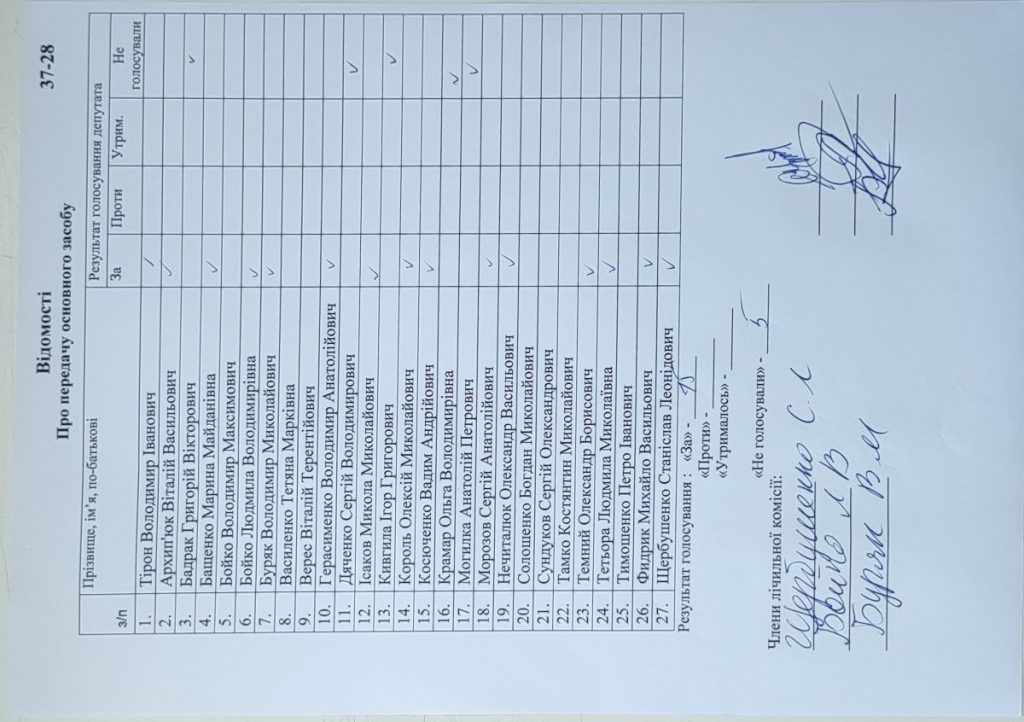 Відомості 37-28
Про передачу основного засобу
з/п Прізвище, ім’я, по-батькові Результат голосування депутата
За Проти Утрим. Не голосували
1. Тірон Володимир Іванович ✓
2. Архип'юк Віталій Васильович ✓
3. Бадрак Григорій Вікторович ✓
4. Бащенко Марина Майданівна ✓
5. Бойко Володимир Максимович
6. Бойко Людмила Володимирівна ✓
7. Буряк Володимир Миколайович ✓
8. Василенко Тетяна Марківна
9. Верес Віталій Терентійович
10. Герасименко Володимир Анатолійович ✓
11. Дяченко Сергій Володимирович ✓
12. Ісаков Микола Миколайович ✓
13. Кивгила Ігор Григорович ✓
14. Король Олексій Миколайович ✓
15. Косюченко Вадим Андрійович ✓
16. Крамар Ольга Володимирівна ✓
17. Могилка Анатолій Петрович ✓
18. Морозов Сергій Анатолійович ✓
19. Нечиталюк Олександр Васильович ✓
20. Солошенко Богдан Миколайович
21. Сундуков Сергій Олександрович
22. Тамко Костянтин Миколайович
23. Темний Олександр Борисович ✓
24. Тетьора Людмила Миколаївна ✓
25. Тимошенко Петро Іванович
26. Фидрик Михайло Васильович ✓
27. Щербушенко Станіслав Леонідович ✓
Результат голосування : «За» - 15
«Проти» -
«Утрималось» -
«Не голосували» - 5
Члени лічильної комісії:
Щербушенко С.Л
Бойко Л В
Буряк В.М